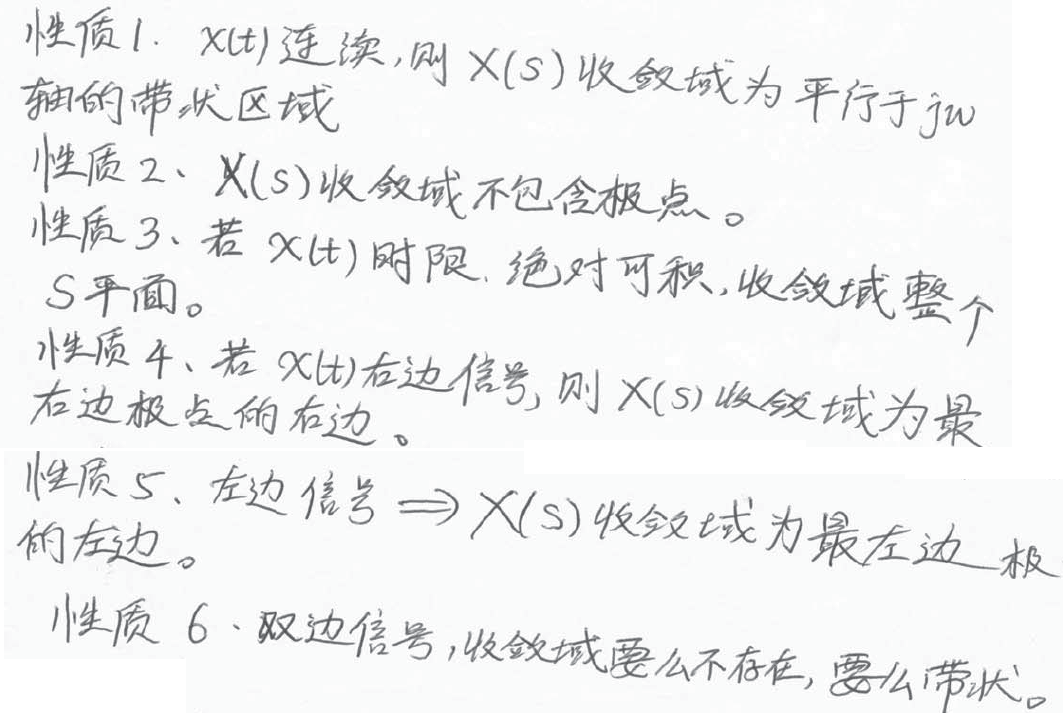 性质1. x(t)连续,则X(s)收敛域为平行于jw
轴的带状区域
性质2、X(s)收敛域不包含极点。
性质3、若x(t)时限.绝对可积,收敛域整个
S平面。
性质4、若x(t)右边信号,则X(s)收敛域为最
右边极点的右边。
性质5、左边信号⇒X(s)收敛域为最左边极
的左边。
性质6.双边信号,收敛域要么不存在,要么带状。